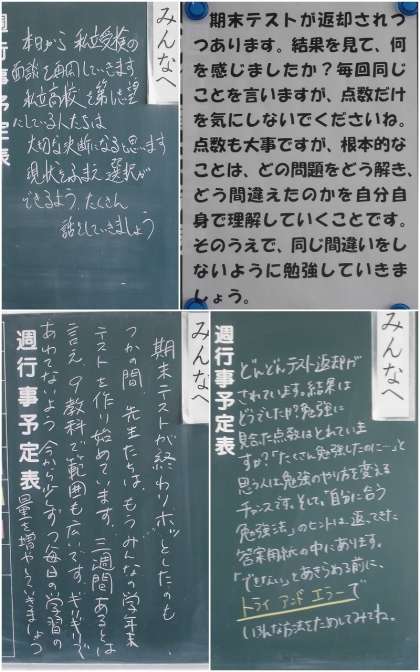 みんなへ
本日から私立受検の
面談を再開していきます
私立高校を第1志望
にしている人たちは
大切な決断になると思います
現状をふまえ選択が
できるよう、たくさん
話をしていきましょう
週行事予定表
期末テストが返却されつ
つあります。結果を見て、何
を感じましたか？毎回同じ
ことを言いますが、点数だけ
を気にしないでくださいね。
点数も大事ですが、根本的な
ことは、どの問題をどう解き、
どう間違えたのかを自分自
身で理解していくことです。
そのうえで、同じ間違いをし
ないように勉強していきま
しょう。
みんなへ
期末テストが終わりホッとしたのも
つかの間、先生たちは、もうみんなの学年末
テストを作り始めています。三週間あるとは
言え、9教科で範囲も広いです。ギリギリで
あわてないよう、今から少しずつ毎日の学習の
量を増やしていきましょう
週行事予定表
みんなへ
どんどんテスト返却が
されています。結果は
どうでしたか?勉強に
見合った点数はとれていま
すか?「たくさん勉強したのに…」と
思う人は勉強のやり方を変える
チャンスです。そして、「自分に合う
勉強法」のヒントは、返ってきた
答案用紙の中にあります。
「できない」とあきらめる前に、
トライ アンド エラーで
いろんな方法をためしてみてね。
週行事予定表